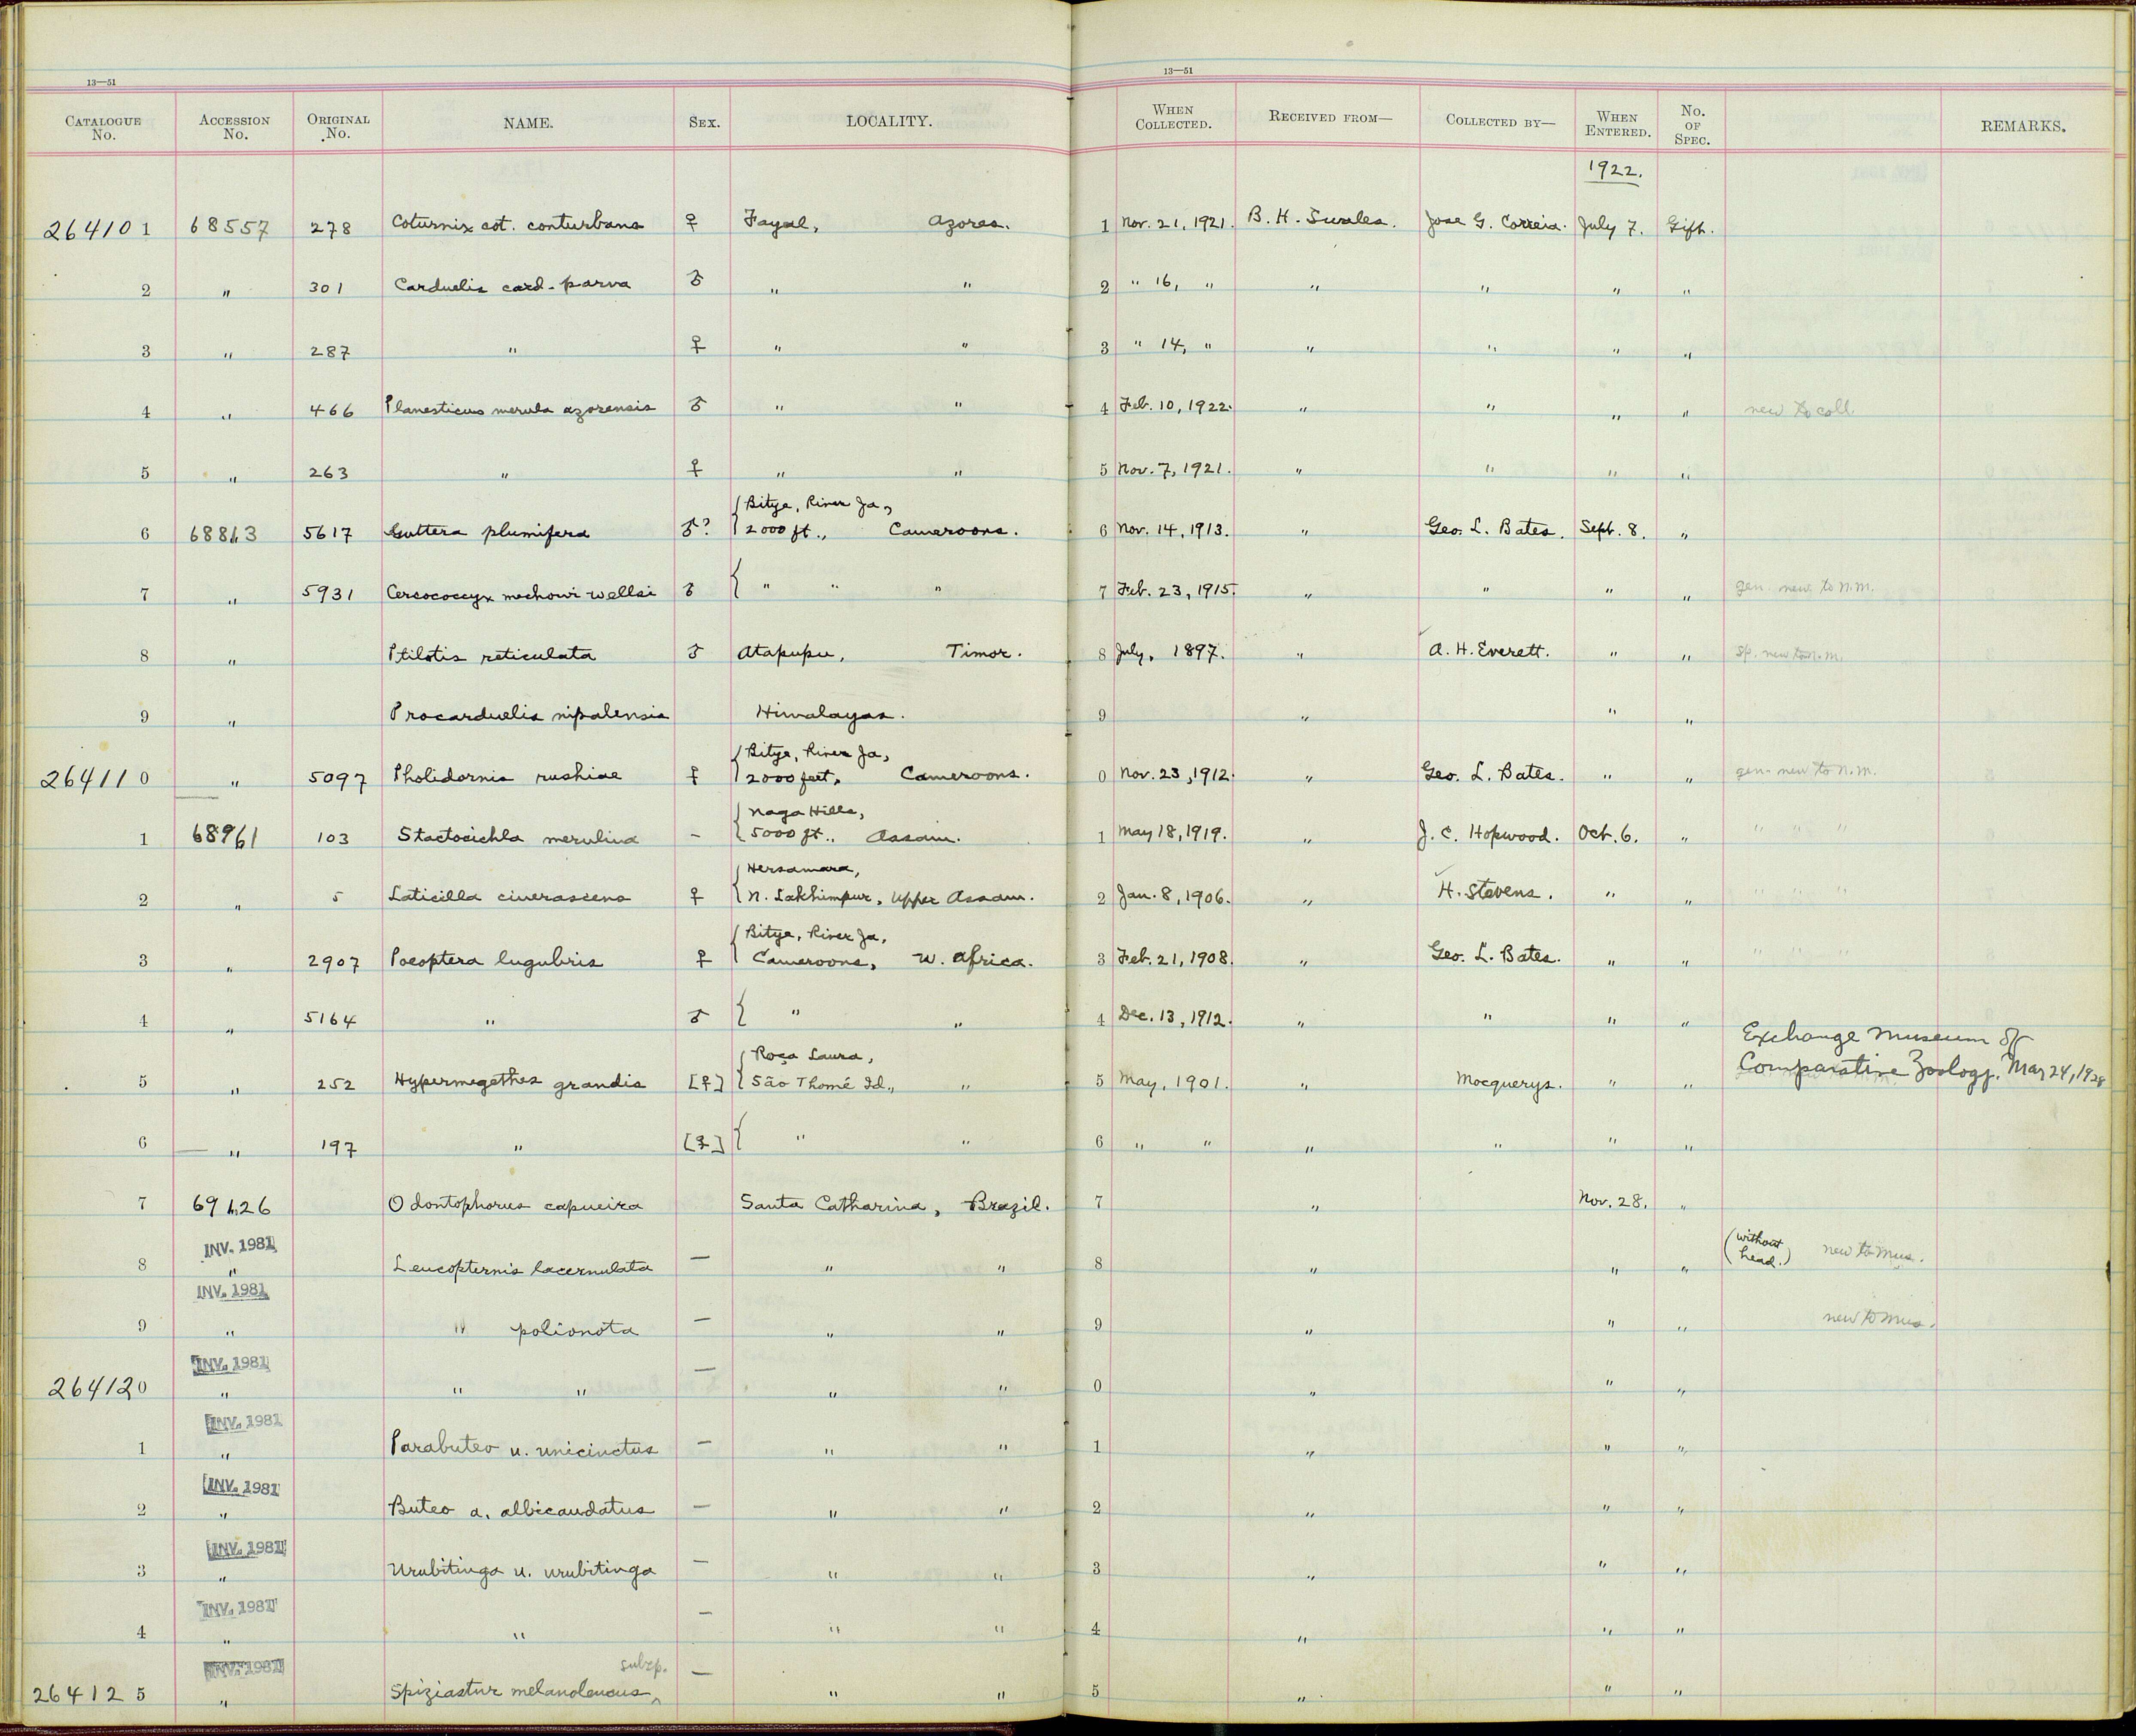 13—51
13—51
CATALOGUE No. ACCESSION No. ORIGINAL No. NAME. SEX. LOCALITY. WHEN COLLECTED. RECEIVED FROM— COLLECTED BY— WHEN ENTERED. No. OF SPEC. REMARKS.
1922.
264101 68557 278 Coturnix cot. conturbans ♀ Fayal, Azores. 1 Nov. 21, 1921. B. H. Swales. Jose G. Correia. July 7. Gift.
2 " 301 Carduelis card. parva ♂ " " 2 " 16, " " " " "
3 " 287 " ♀ " " 3 " 14, " " " " "
4 " 466 Planesticus merula azorensis ♂ " " 4 Feb. 10, 1922. " " " " new to coll.
5 " 263 " ♀ " " 5 Nov. 7, 1921. " " " "
6 68813 5617 Guttera plumifera ♂? { Bitye, River Ja,
2000 ft., Cameroons. 6 Nov. 14, 1913. " Geo. L. Bates. Sept. 8. "
7 " 5931 Cercococcyx mechowi wellsi ♂ { " " " 7 Feb. 23, 1915. " " " " gen. new to N.M.
8 " Ptilotis reticulata ♂ Atapupu, Timor. 8 July, 1897. " A. H. Everett. " " sp. new to N.M.
9 " Procarduelis nipalensis Himalayas. 9 " " "
264110 " 5097 Pholidornis rushiae ♀ { Bitye, River Ja,
2000 feet, Cameroons. 0 Nov. 23, 1912. " Geo. L. Bates. " " gen. new to N.M.
1 68961 103 Stactocichla merulina - { Naga Hills,
5000 ft., Assam. 1 May 18, 1919. " J. C. Hopwood. Oct. 6. " " " "
2 " 5 Laticilla cinerascens ♀ { Hersamara,
N. Lakhimpur, Upper Assam. 2 Jan. 8, 1906. " H. Stevens. " " " " "
3 " 2907 Poeoptera lugubris ♀ { Bitye, River Ja,
Cameroons, W. Africa. 3 Feb. 21, 1908. " Geo. L. Bates. " " " " "
4 " 5164 " ♂ { " " 4 Dec. 13, 1912. " " " "
Exchange Museum of
Comparative Zoology. Mar 24, 1928
5 " 252 Hypermegethes grandis [♀] { Roça Laura,
São Thomé Id., " 5 May, 1901. " Mocquerys. " "
6 " 197 " [♀] { " " 6 " " " " " "
7 69126 Odontophorus capueira Santa Catharina, Brazil. 7 " Nov. 28. "
INV. 1981
8 " Leucopternis lacernulata — " " 8 " " " (without head.) new to Mus.
INV. 1981
9 " " polionota — " " 9 " " " new to Mus.
INV. 1981
264120 " " " — " " 0 " " "
INV. 1981
1 " Parabuteo u. unicinctus — " " 1 " " "
INV. 1981
2 " Buteo a. albicaudatus — " " 2 " " "
INV. 1981
3 " Urubitinga u. urubitinga — " " 3 " " "
INV. 1981
4 " " — " " 4 " " "
INV. 1981
subsp.
264125 " Spiziastur melanoleucus ^ — " " 5 " " "